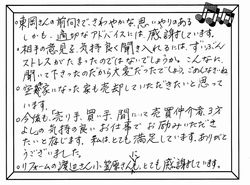 ・東岡さんの前向きで、さわやかな、思いやりのある
しかも、適切なアドバイスには、感謝しています。
・相手の意見を、気持ち良く聞き入れるには、ずいぶん
ストレスがたまったのではないでしょうか。こんなに、
聞いて下さったのだから大変だったでしょう。ごめんなさいね
・空家になった家も売却していただきたいと思って
います。
・今後も、売り手、買い手、間にって売買仲介者、3方
よしの気持の良いお仕事でお励みいただき
たいと存じます。私はとても満足しています。ありがとう
ございました。
・リフォームの渡辺さん、小笠原さんにもとても感謝しています。